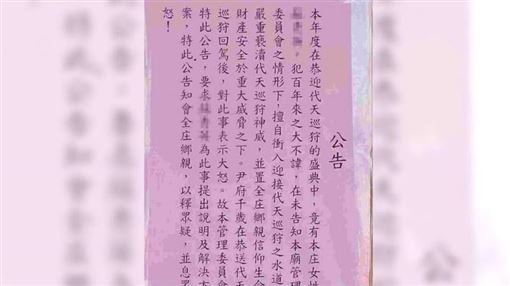 公告
本年度在恭迎代天巡狩的盛典中，竟有本庄女
，犯百年來之大不諱，在未告知本廟管理
委員會之情形下，擅自衝入迎接代天巡狩之水道
嚴重褻瀆代天巡狩神威，並置全庄鄉親信仰生命
財產安全於重大威脅之下。尹府千歲在恭送代天
巡狩回駕後，對此事表示大怒。故本管理委員會
特此公告，要求為此事提出說明及解決方
案，特此公告知會全庄鄉親，以釋眾疑，並息眾
怒！